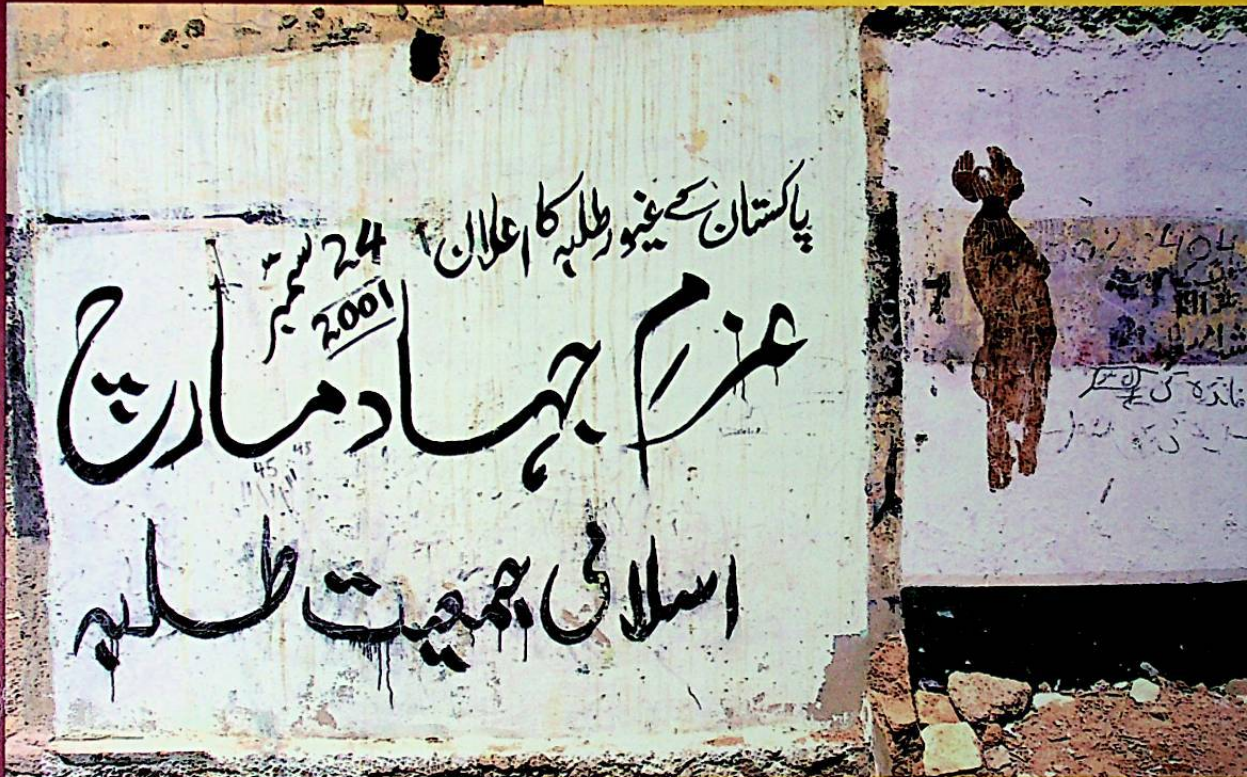 پاکستان کے غیور طلبہ کا اعلان
24 ستمبر
2001
عزمِ جہاد مارچ
اسلامی جمعیت طلبہ
45 45
404